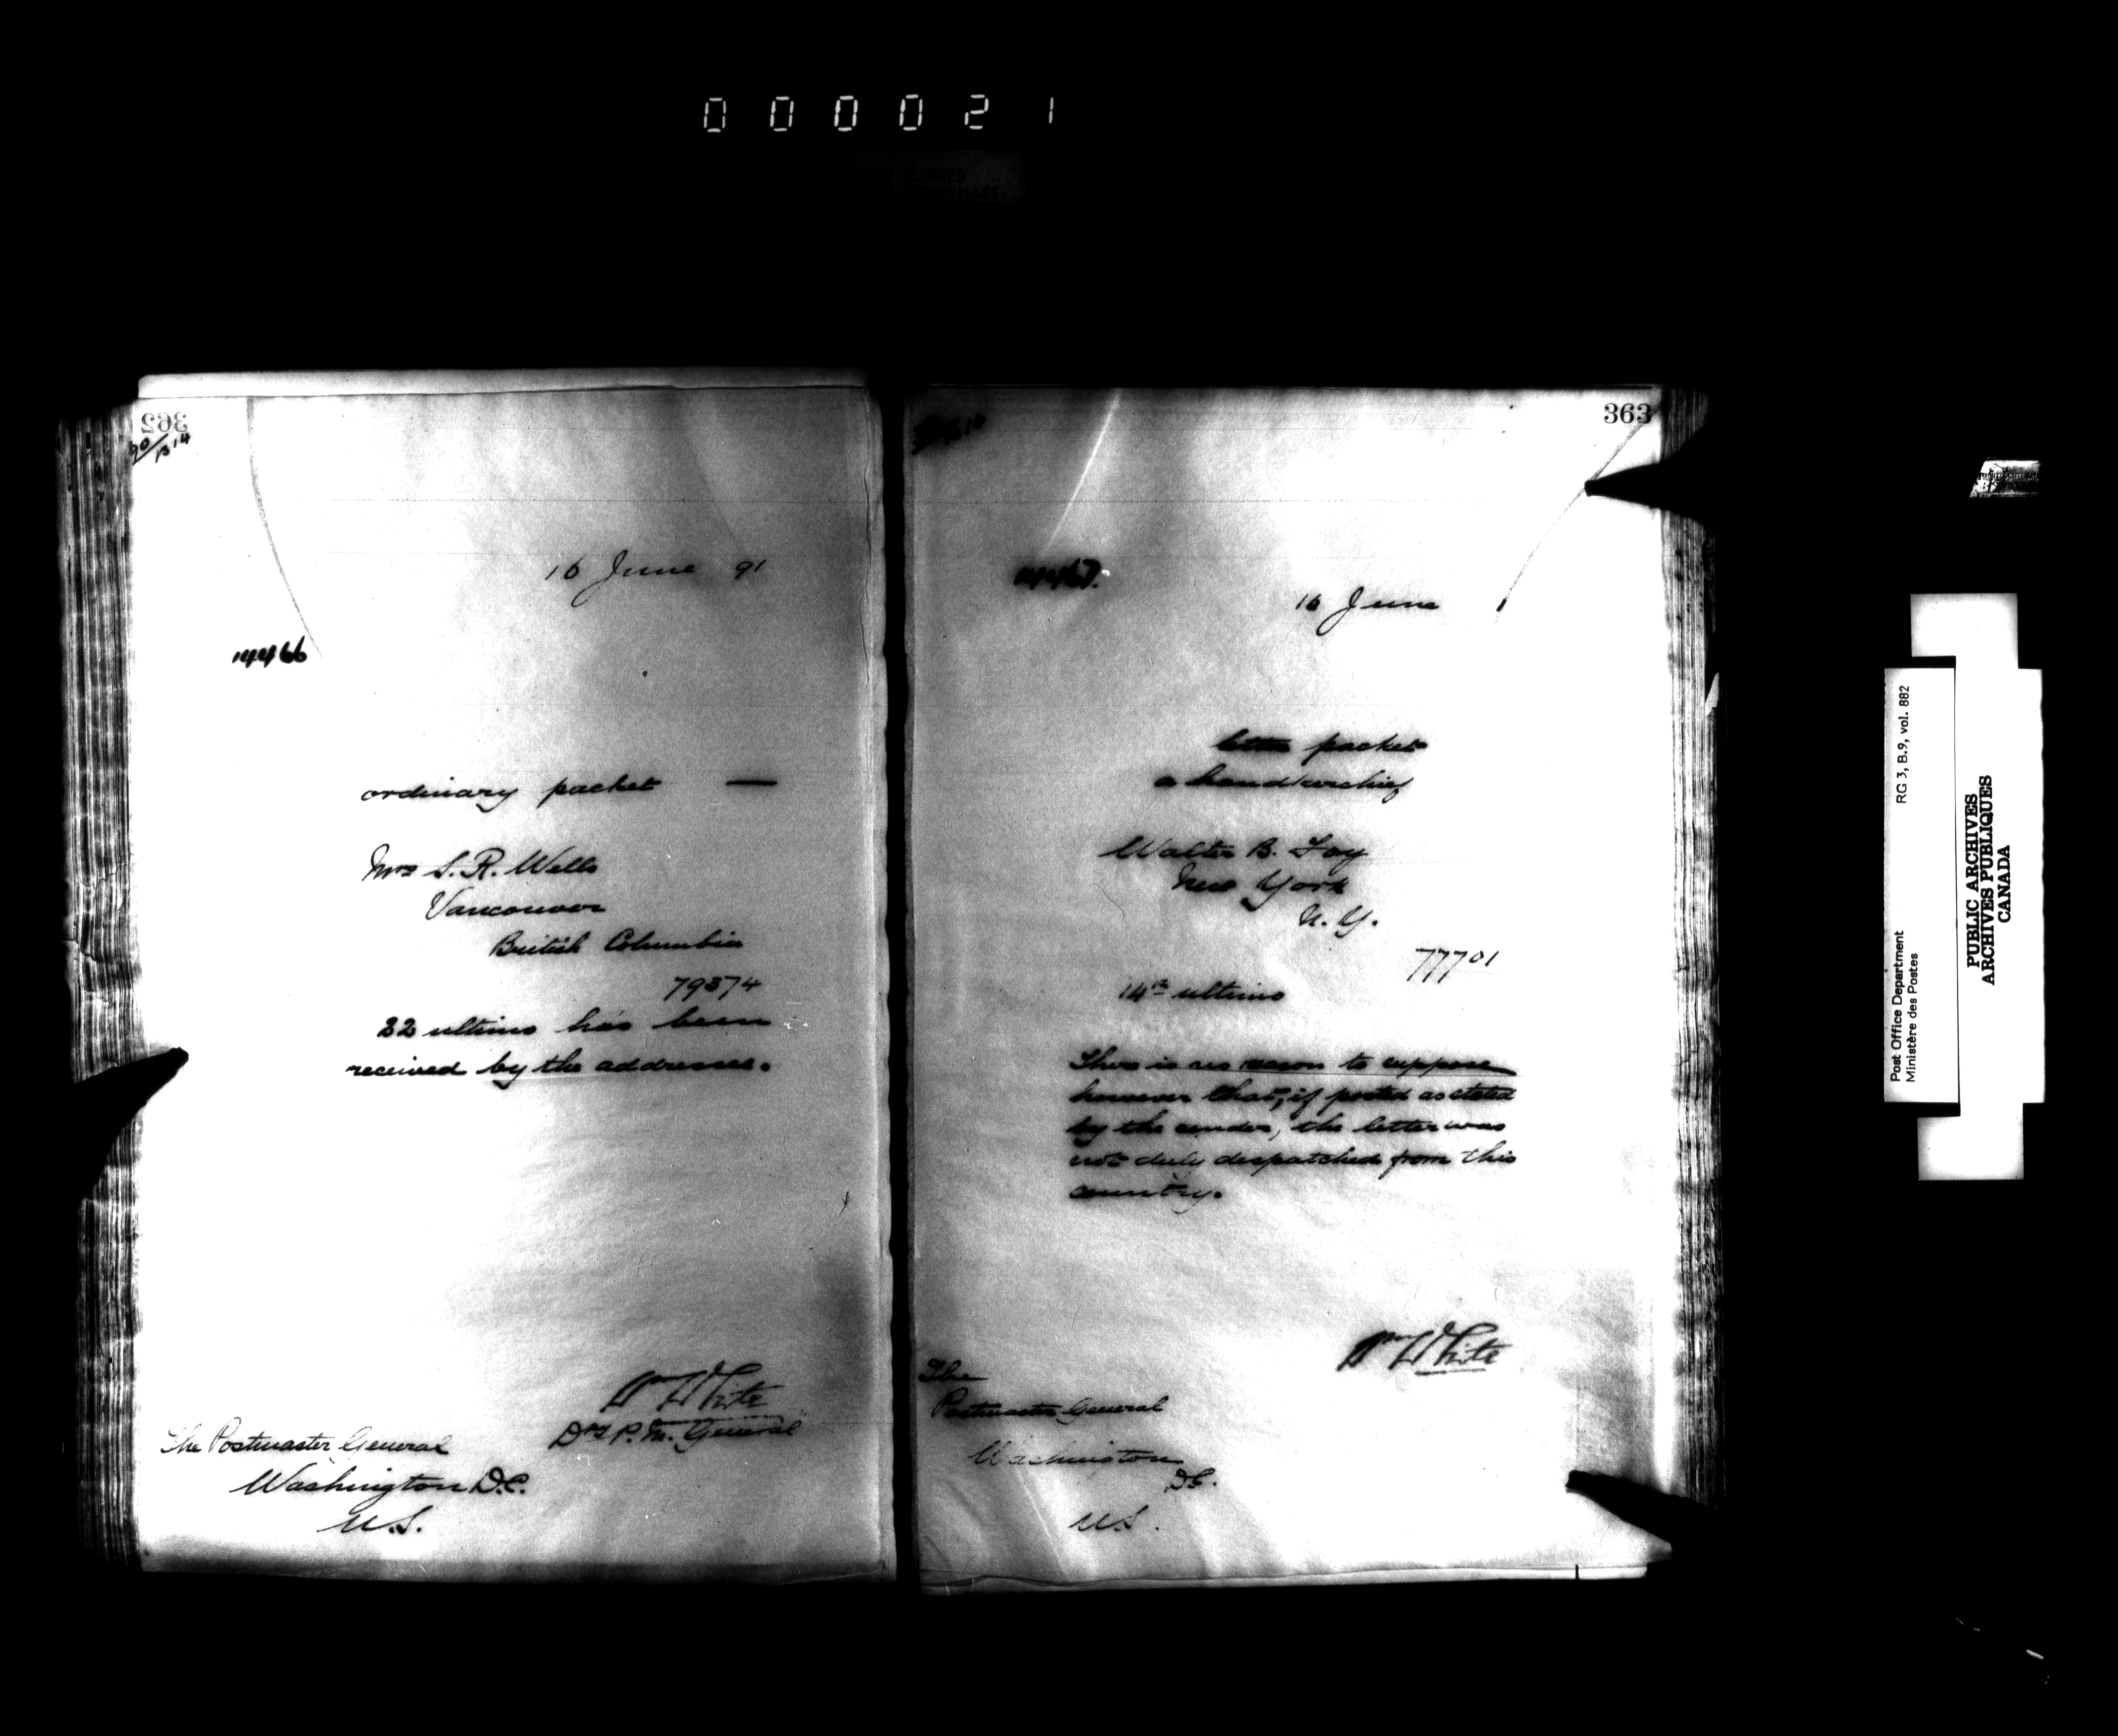 000021
362
90/B14
16 June 91
14466
ordinary packet —
Mrs S. R. Wells
Vancouver
British Columbia
79374
22 ultimo has been
received by the addressee.
Wm White
Dy P. M. General
The Postmaster General
Washington D.C.
U.S.
363
14467.
16 June
letter packet
a handkerchief
Walter B. Foy
New York
N. Y.
77701
14th ultimo
There is no reason to suppose
however that, if posted as stated
by the sender, the letter was
not duly despatched from this
country.
Wm White
The
Postmaster General
Washington
D.C.
U.S.
Post Office Department
Ministère des Postes
RG 3, B.9, vol. 882
PUBLIC ARCHIVES
ARCHIVES PUBLIQUES
CANADA